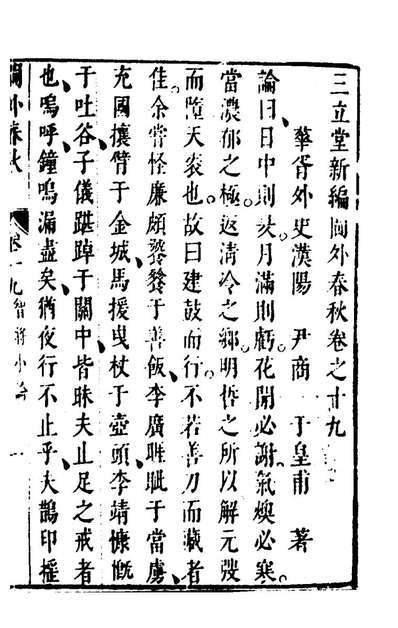 三立堂新編閫外春秋卷之十九
華胥外史漢陽　尹商　于皇甫　著
論曰日中則昃月滿則虧花開必謝氣燠必寒
當濃郁之極返清冷之鄉明哲之所以解元弢
而墮天袠也故曰建鼓而行不若善刀而藏者
佳余嘗怪廉頗饕餮于善飯李廣睚眦于當虜
充國攘臂于金城馬援曳杖于壺頭李靖慷慨
于吐谷子儀踸踔于關中皆昧夫止足之戒者
也嗚呼鐘鳴漏盡矣猶夜行不止乎夫鵲印摧
閫外春秋　卷十九智將小論　一